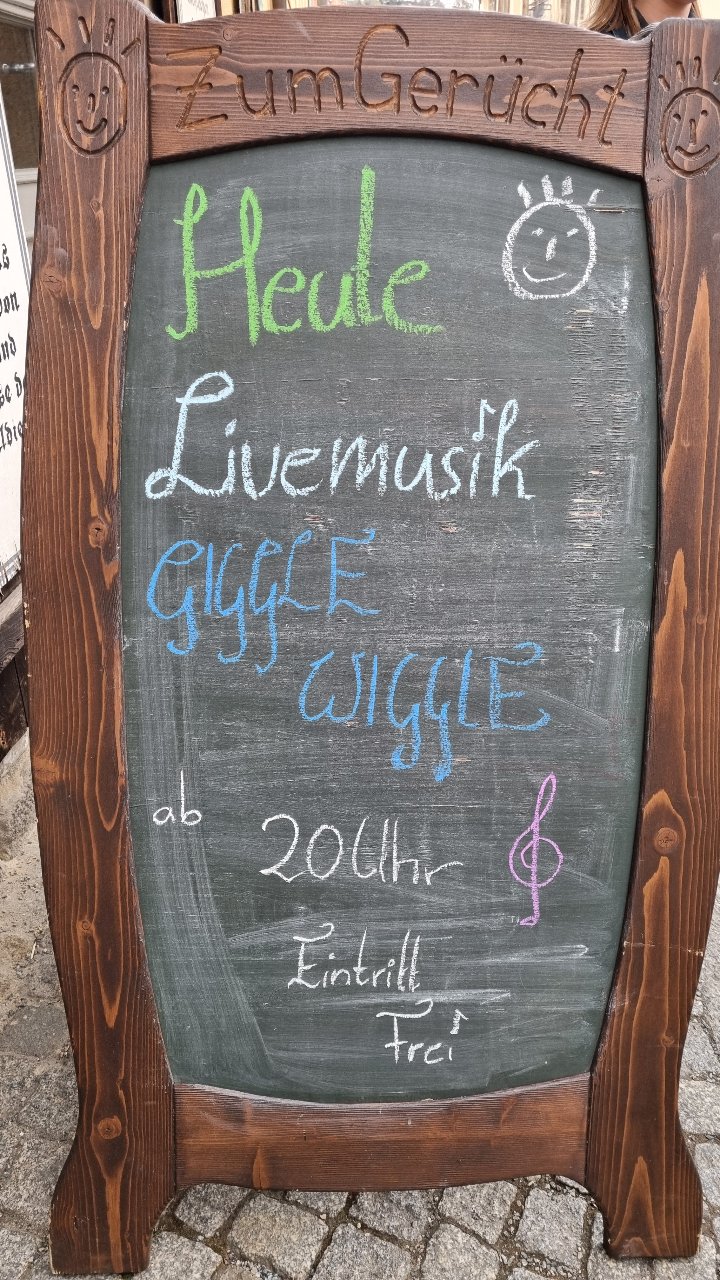 Zum Gerücht
Heute
Livemusik
GIGGLE
WIGGLE
ab
20 Uhr
Eintritt
Frei